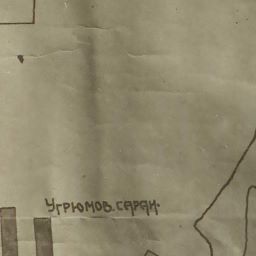 Угрюмов. сараи.